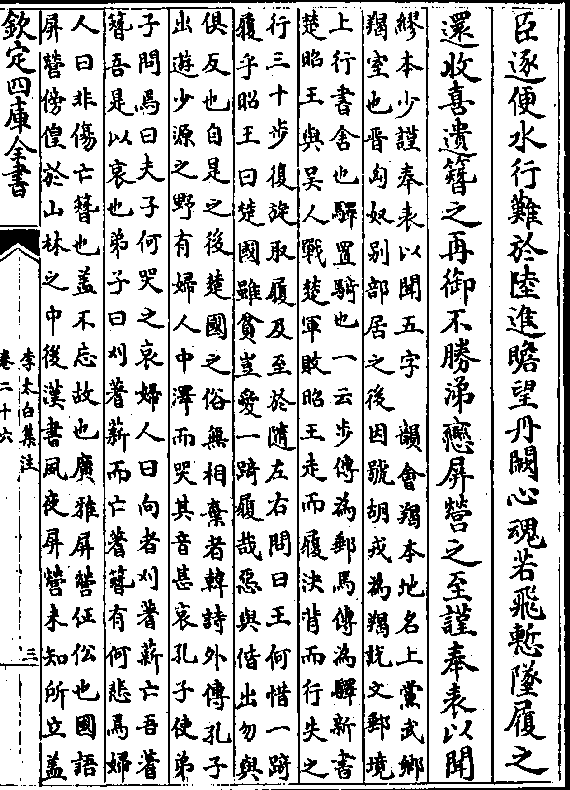 臣逐便水行難於陸進瞻望丹闕心魂若飛慙墜履之
還收喜遺簪之再御不勝涕戀屏營之至謹奉表以聞
繆本少謹奉表以聞五字　韻會羯本地名上黨武鄉
羯室也晉匈奴别部居之後因號胡戎為羯説文郵境
上行書舍也驛置騎也一云步傳為郵馬傳為驛新書
楚昭王與吳人戰楚軍敗昭王走而履決背而行失之
行三十步復旋取履及至於隨左右問曰王何惜一踦
履乎昭王曰楚國雖貧豈愛一踦履哉惡與偕出勿與
俱反也自是之後楚國之俗無相棄者韓詩外傳孔子
出遊少源之野有婦人中澤而哭其音甚哀孔子使弟
子問焉曰夫子何哭之哀婦人曰向者刈蓍薪亡吾蓍
簪吾是以哀也弟子曰刈蓍薪而亡蓍簪有何悲焉婦
人曰非傷亡簪也蓋不忘故也廣雅屏營怔忪也國語
屏營傍偟於山林之中後漢書夙夜屏營未知所立蓋
欽定四庫全書
李太白集注
卷二十六
三